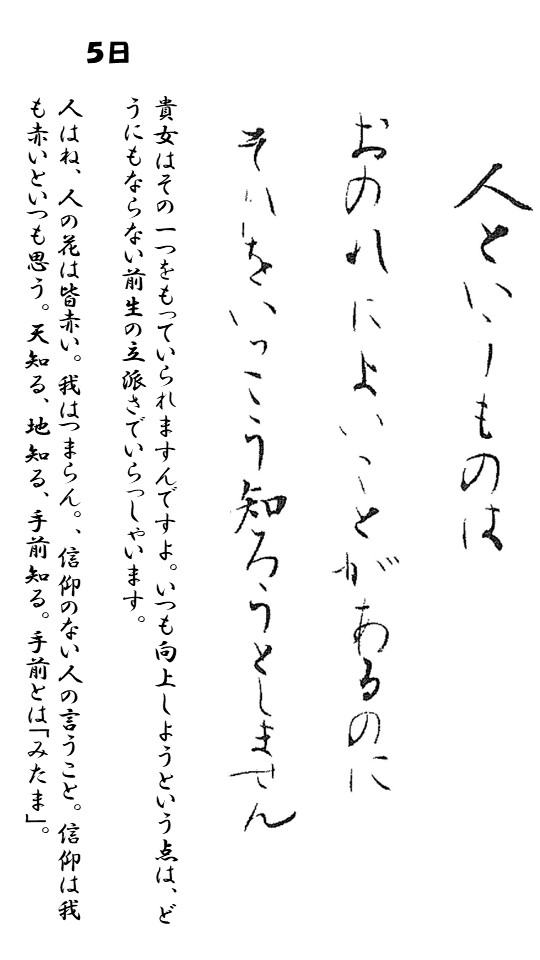 5日
人というものは
おのれによいことがあるのに
それをいっこう知ろうとしません
貴女はその一つをもっていられますんですよ。いつも向上しようという点は、ど
うにもならない前生の立派さでいらっしゃいます。
人はね、人の花は皆赤い。我はつまらん。、信仰のない人の言うこと。信仰は我
も赤いといつも思う。天知る、地知る、手前知る。手前とは「みたま」。